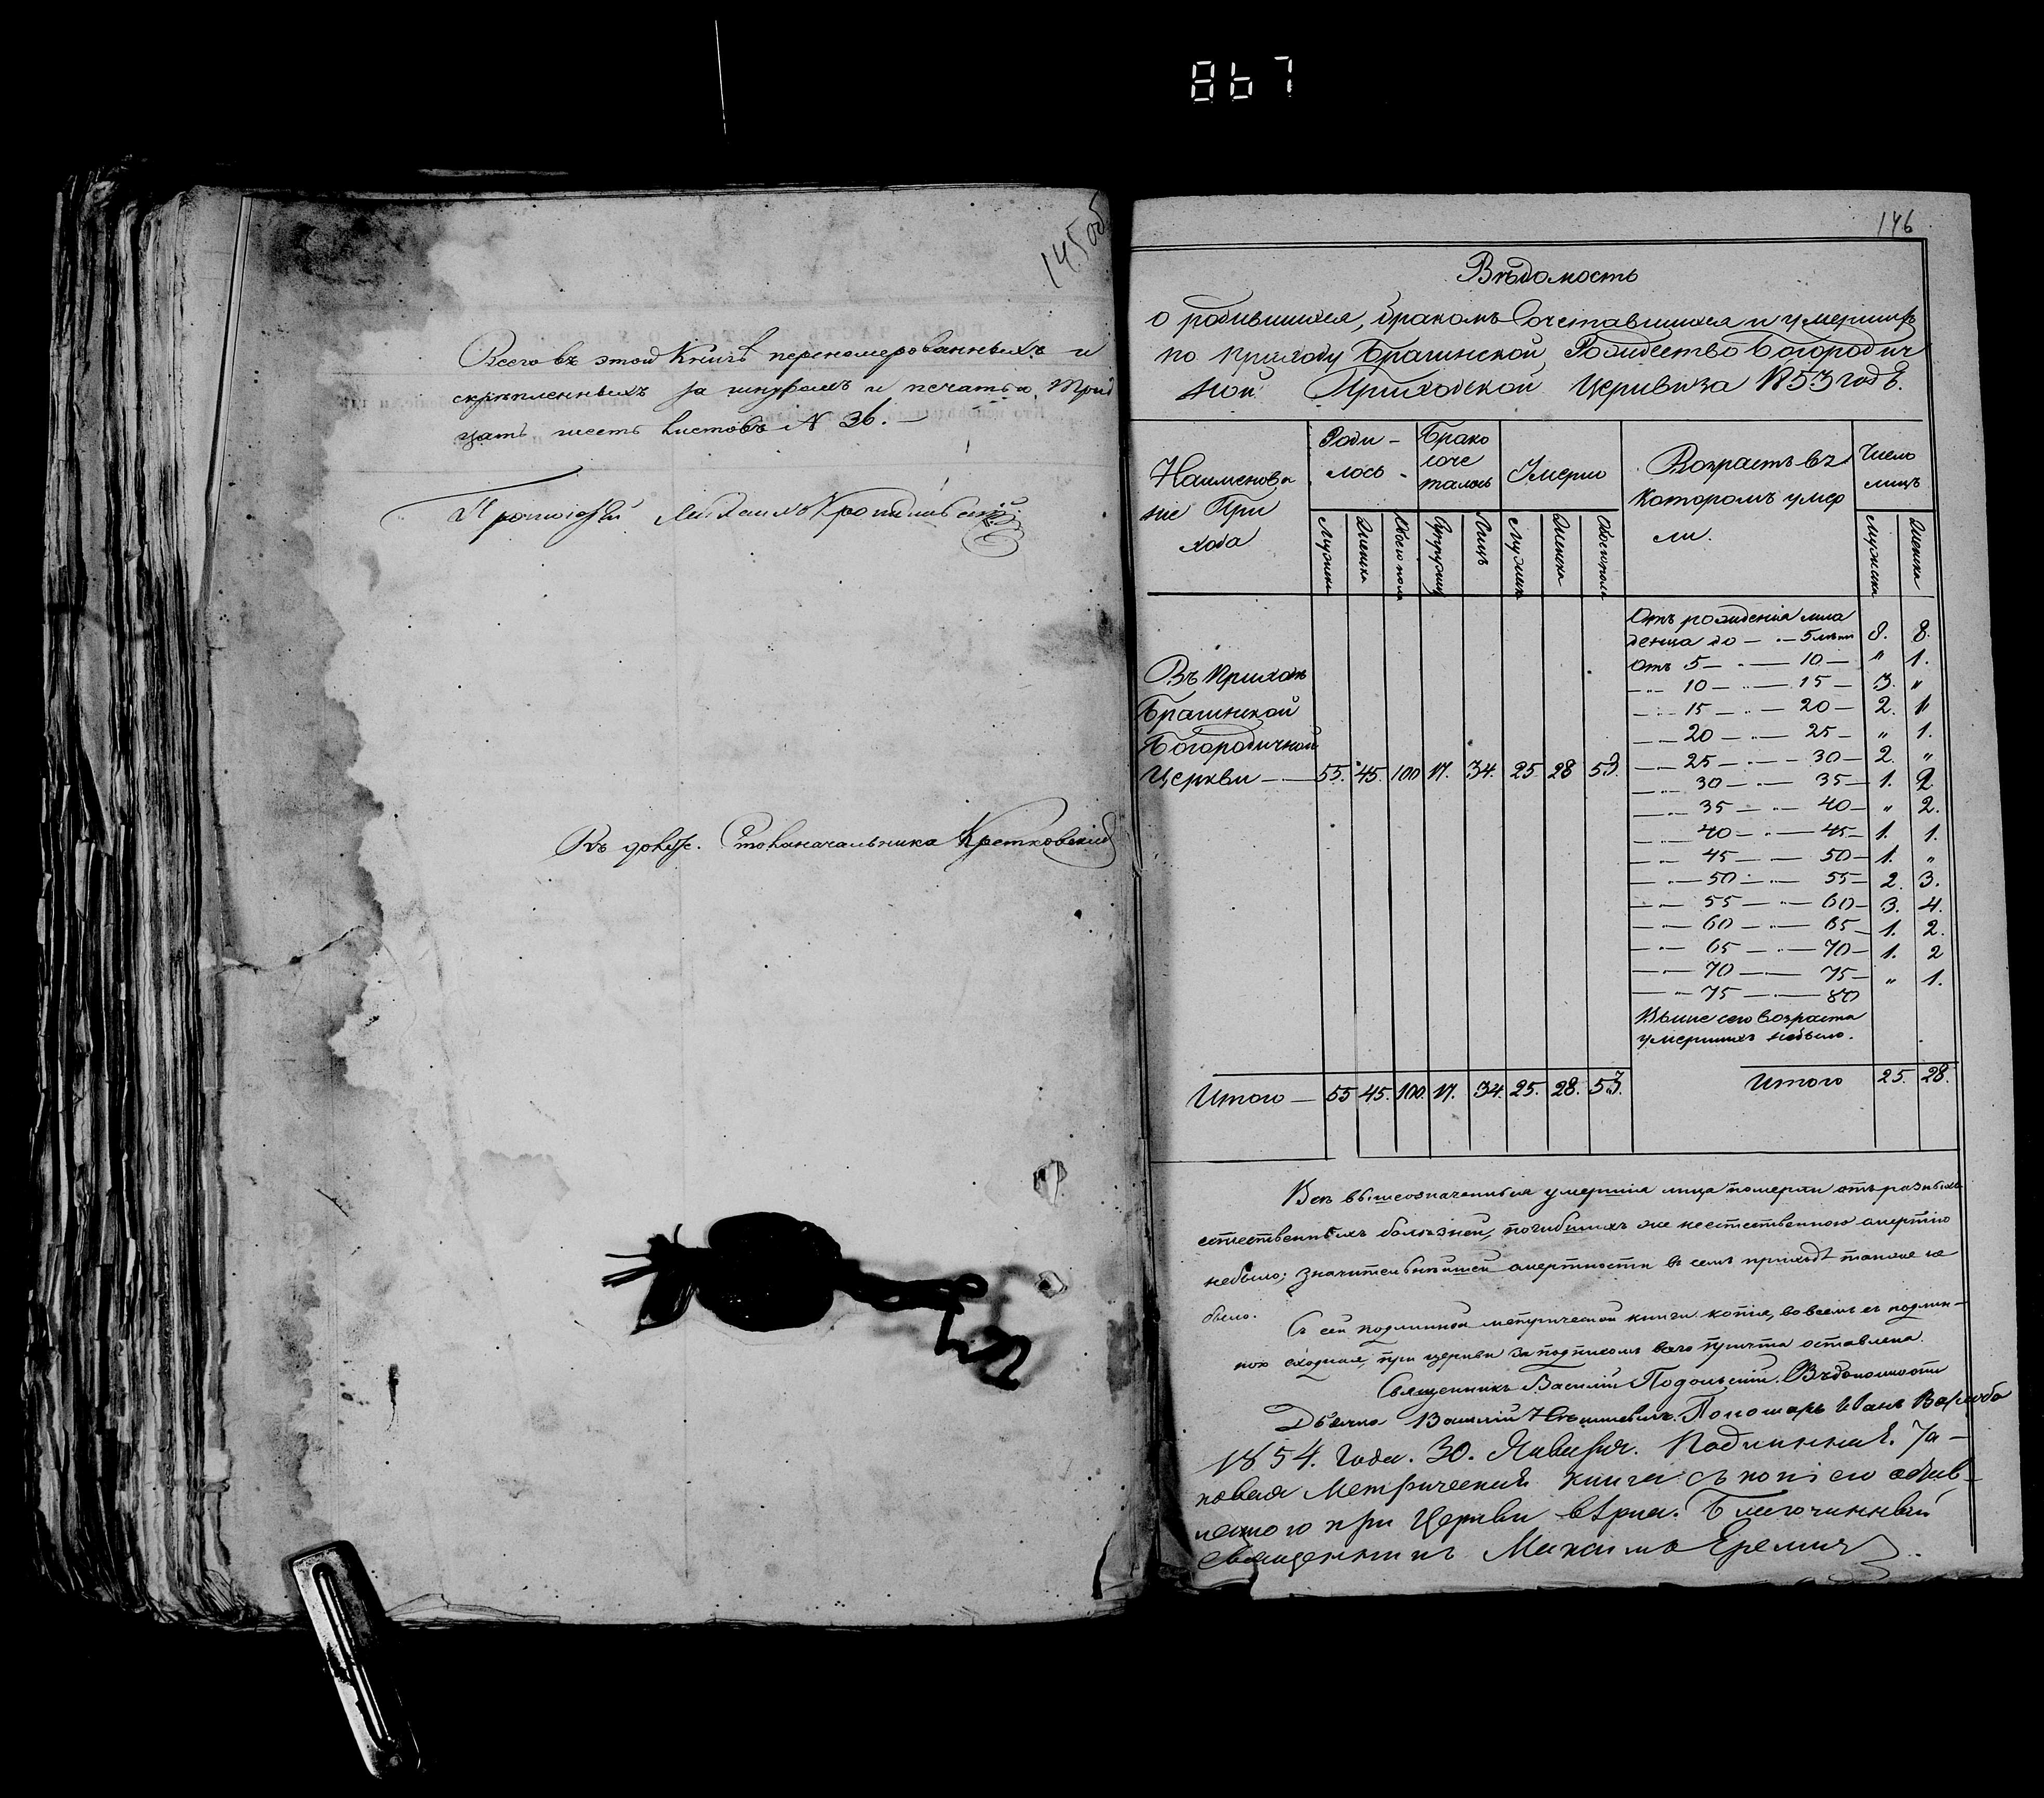 867
145 об
Всего въ этой Книгѣ перенумерованныхъ и
скрѣпленныхъ за шнуромъ и печатью Трид
цать шесть листовъ № 36.
Протоіерей
Въ долж. Столоначальника Кретковскій
146
Вѣдомость
о родившихся, бракомъ Сочетавшихся и умершихъ
по приходу Брагинской Рождество Богородич
ной Приходской Церкви за 1853 годъ.
Наименова
ніе При
хода
Роди-
лось-
Брако
соче
талось
Умерло
Возрастъ въ
Которомъ умер
ли.
Число
лицъ
Мужска Женска Обоего пола Супруж Лицъ Мужска Женска Обоего пола Мужска Женска
Отъ рожденія мла
денца до — — 5 лѣтъ 8. 8.
отъ 5 — 10 — " 1.
— 10 — 15 — 3. "
— 15 — 20 — 2. 1
— 20 — 25 — " 1.
— 25 — 30 — 2. "
— 30 — 35 — 1. 2.
— 35 — 40 — " 2.
— 40 — 45 — 1. 1.
— 45 — 50 — 1. "
— 50 — 55 — 2. 3.
— 55 — 60 — 3. 4.
— 60 — 65 — 1. 2.
— 65 — 70 — 1. 2
— 70 — 75 — " 1.
— 75 — 80
Выше сего возраста
умершихъ небыло.
Въ Приходѣ
Брагинской
Богородичной
Церкви — 55. 45. 100 17. 34. 25. 28 53.
Итого — 55 45. 100. 17. 34. 25. 28. 53.
Итого 25. 28.
Всѣ вышеозначенныя умершія лица померли отъ разныхъ
естественныхъ болѣзней, погибшихъ же неестественною смертію
небыло; значительнѣйшей смертности въ семъ приходѣ также не
было.
Съ сей подлинной метрической книги копія, во всемъ съ подлин-
ною сходная, при церкви за подписомъ всего причта оставлена.
Священникъ Василій Подольскій. Вѣдомости
Дьячка Василій Пономарь Иванъ Варивода
1854. Года. 30. Января. Подлинная. Та-
ковая Метрическая книга съ копіею остав-
ленною при Церкви вѣрна. Благочинный
священникъ Михаилъ Еремичъ